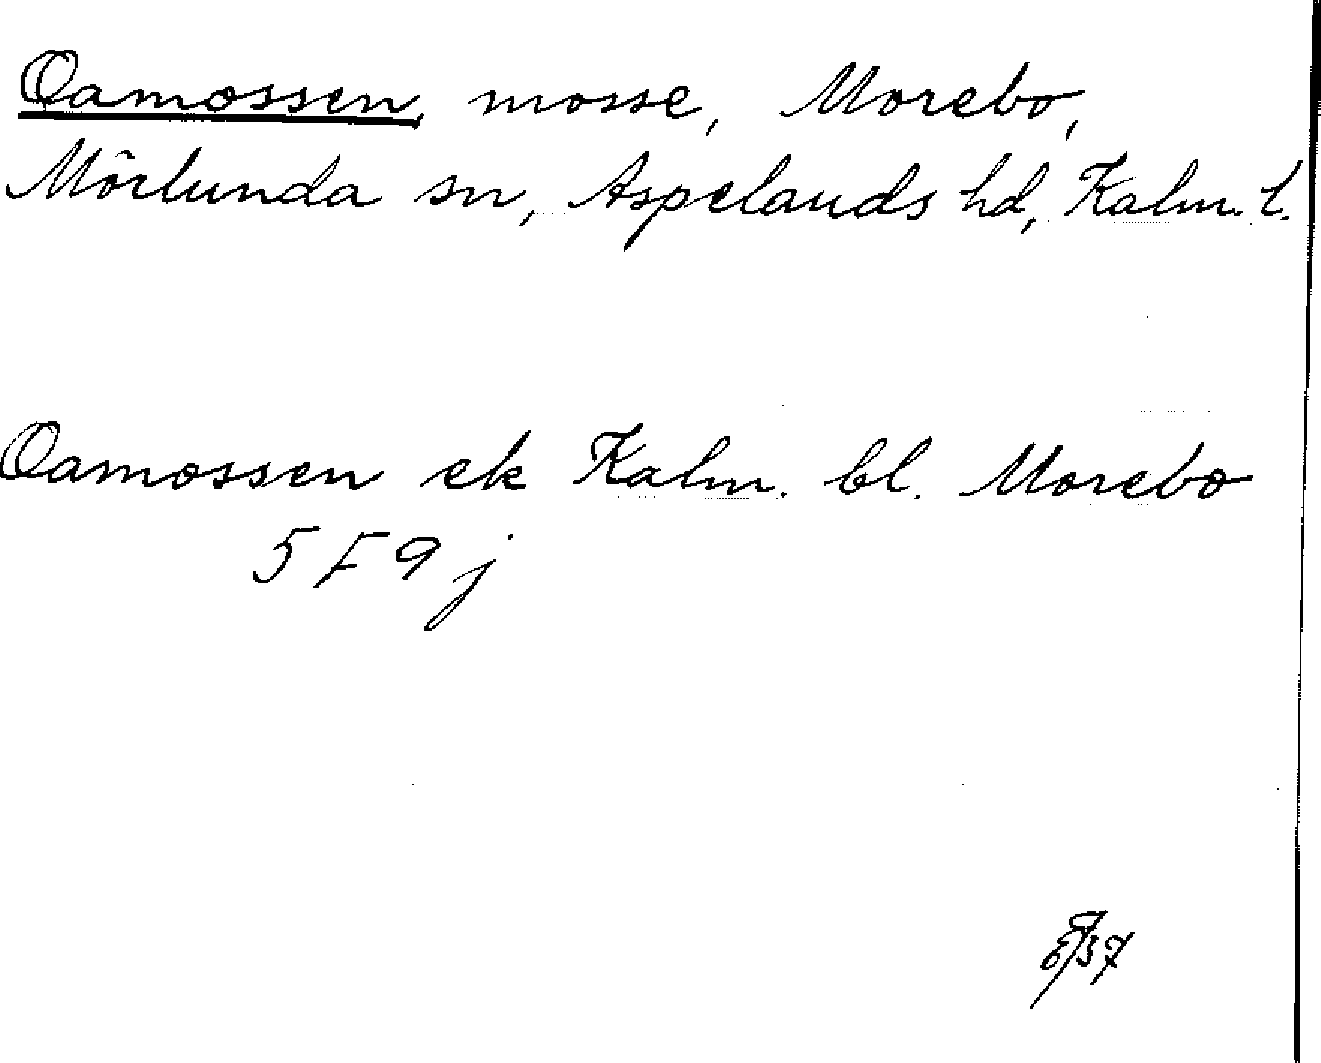 Oamossen, mosse, Morebo,
Mörlunda sn, Aspelands hd, Kalm. l.
Oamossen ek Kalm. bl. Morebo
5 F 9 j